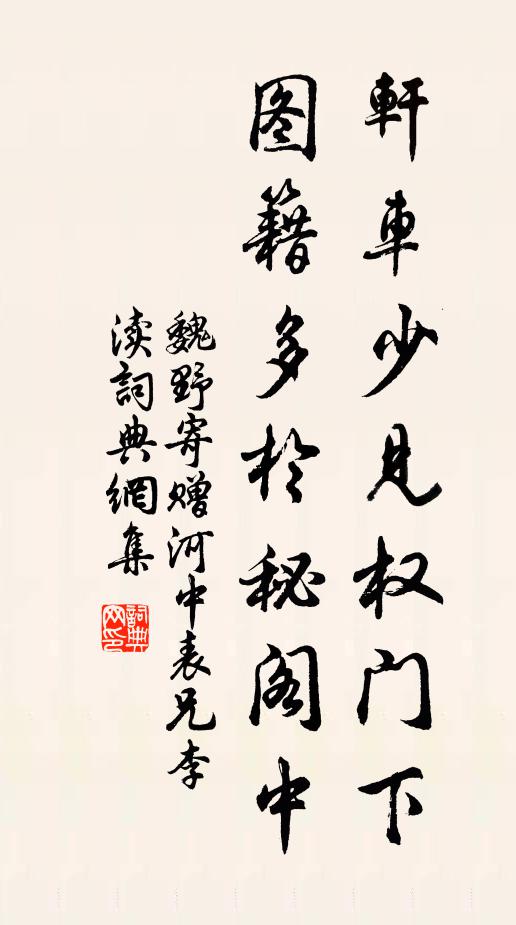 軒車少见权门下
图籍多於秘阁中
魏野寄赠河中表兄李
渎詞典網集
詞典
网印